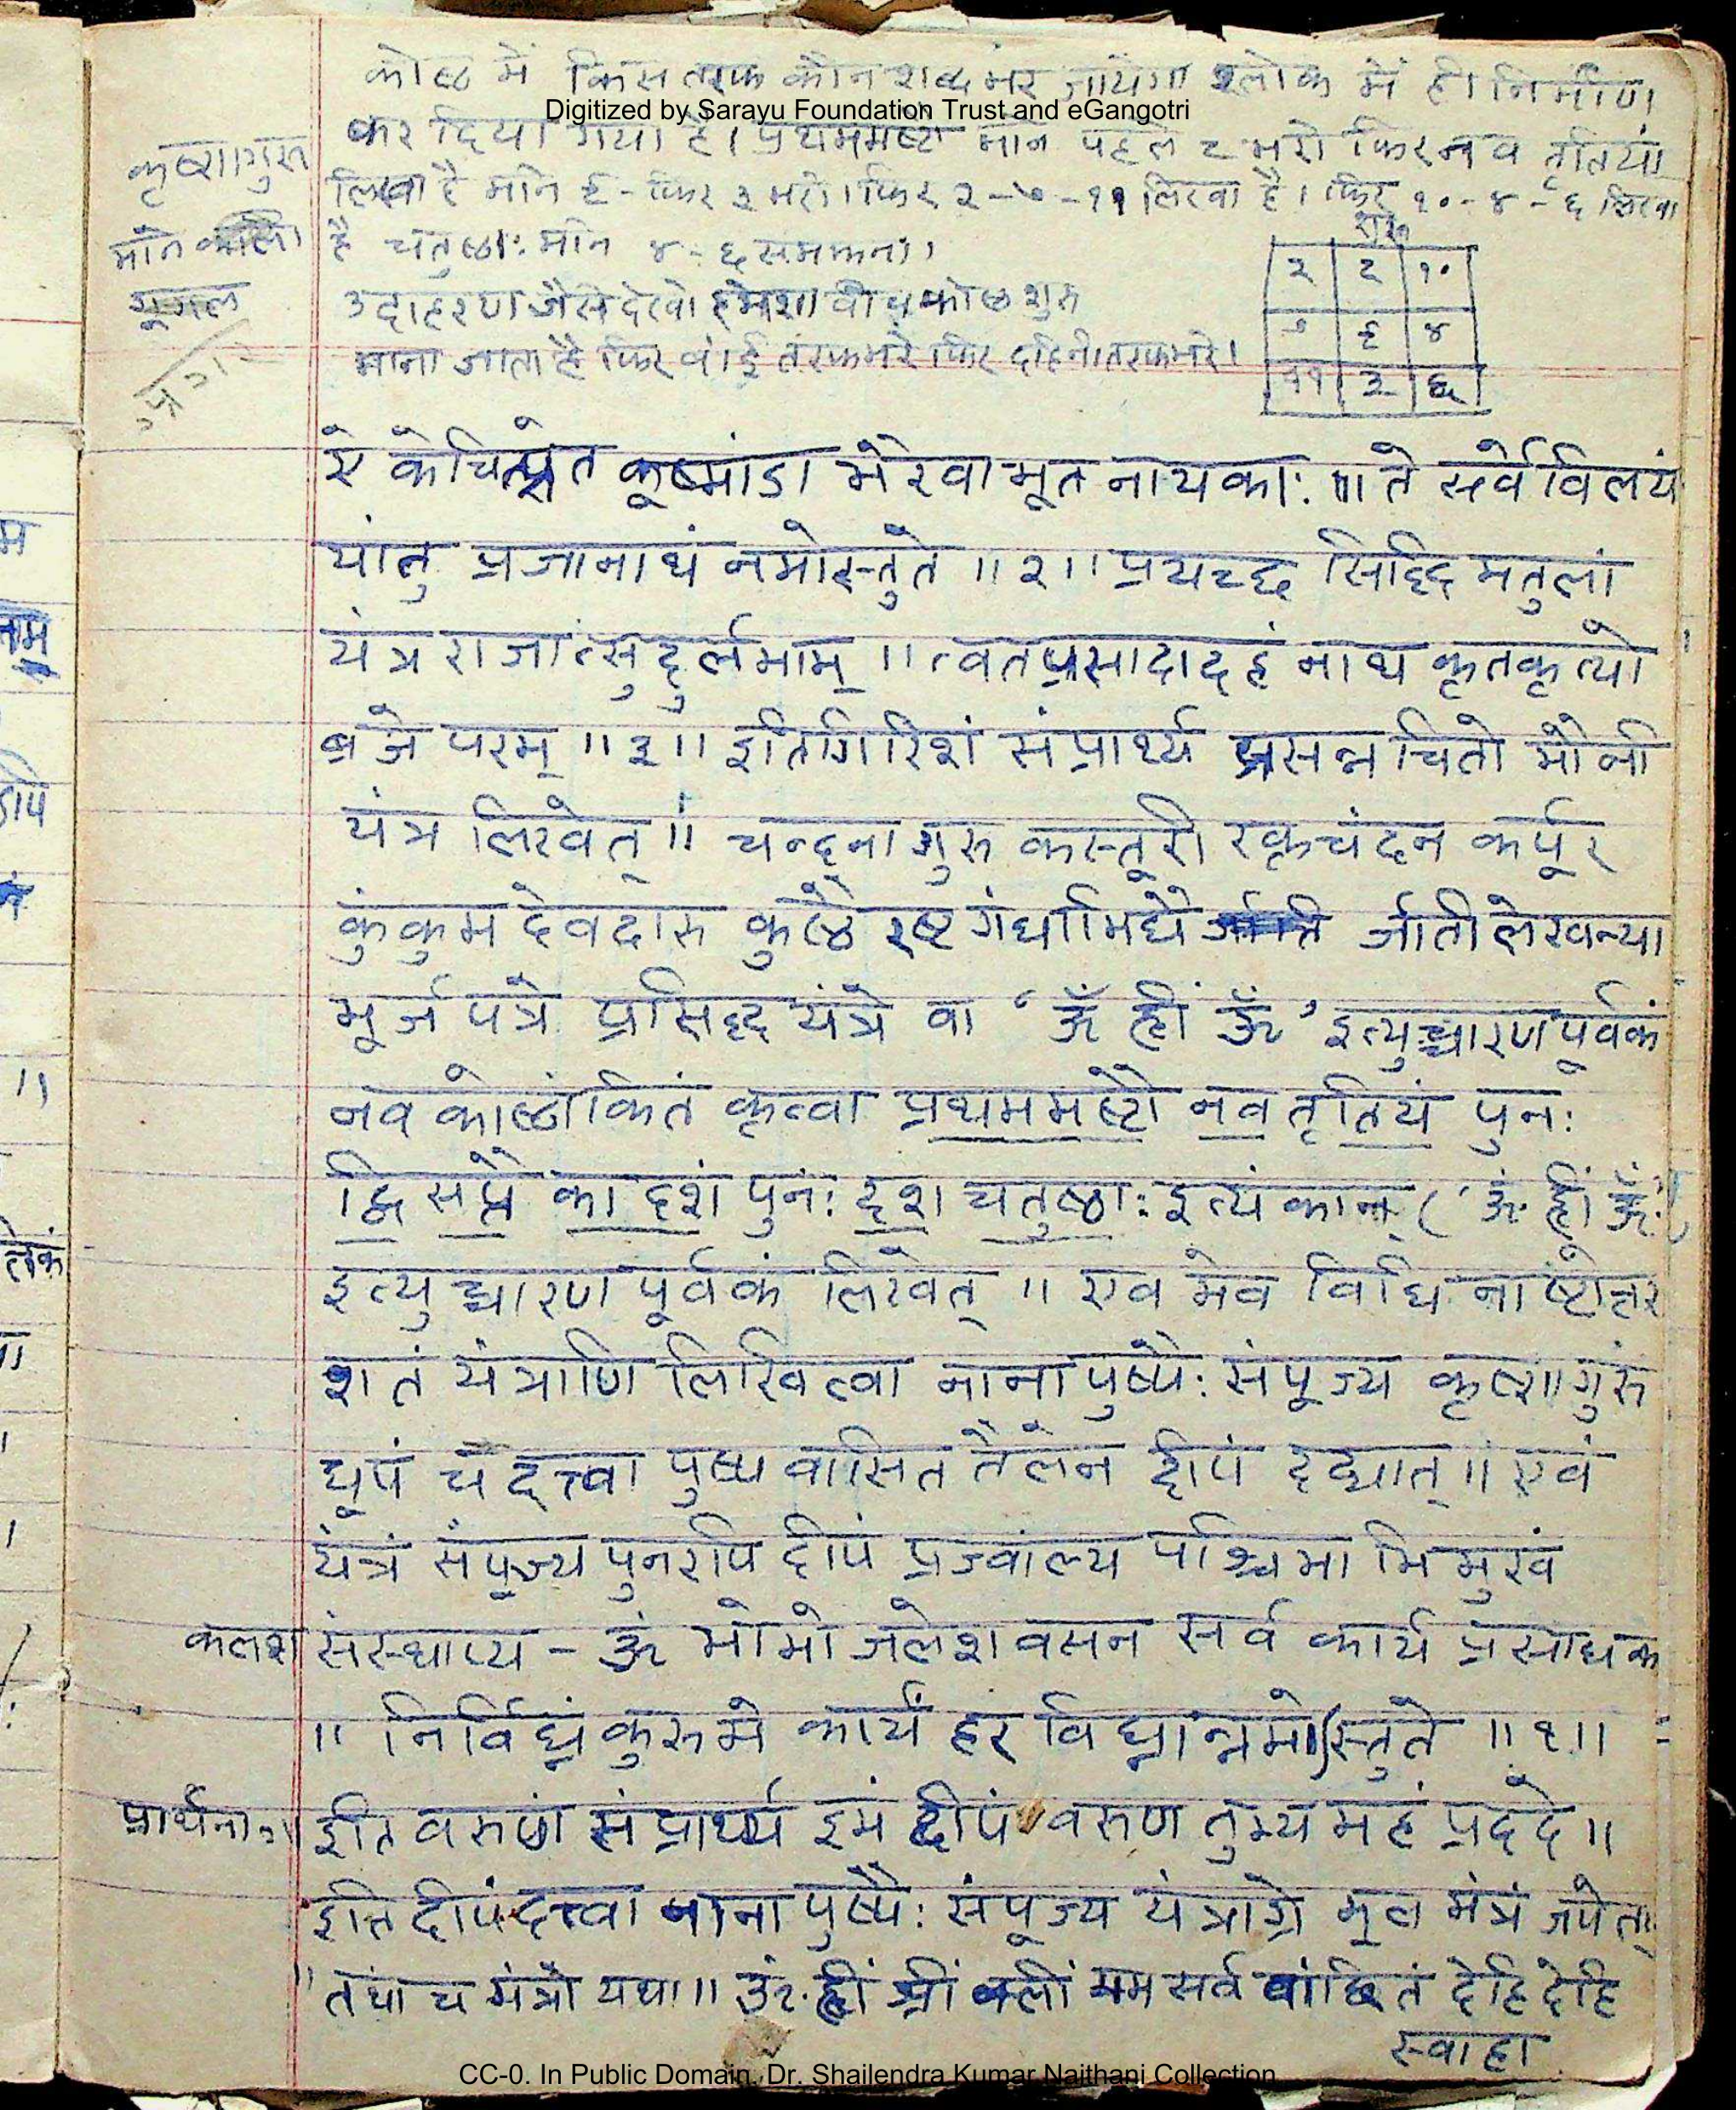 कोष्ठ में किस तरफ कौन शब्द भर जायेगा श्लोक में ही निर्माण
Digitized by Sarayu Foundation Trust and eGangotri
कर दिया गया है। प्रथममष्टो माने पहले ८ भरो फिर नव तृतियं
लिखा है माने ९ - फिर ३ भरो। फिर २ - ७ - ११ लिखा है। फिर १० - ४ - ६ लिखा
है चतुष्ठा: माने ४ - ६ समझना।
उदाहरण जैसे देखो हमेशा बीच कोष्ठ शुरु
माना जाता है फिर बांई तरफ भरे फिर दाहिनी तरफ भरे।
कृष्णागुरु
माने काला
गूगल
शुरु
२ ८ १०
७ ९ ४
११ ३ ६
ये केचित्प्रेत कूष्मांडा भैरवा भूत नायका: ॥ ते सर्वे विलयं
यांतु प्रजानाथं नमोस्तुते ॥२॥ प्रयच्छ सिद्धि मतुलां
यंत्र राजांत्सुदुर्लभाम् ॥ त्वतप्रसादादहं नाथ कृतकृत्यो
ब्रजे परम् ॥३॥ इतिगिरिशं संप्रार्थ्य प्रसन्न चितो मौनी
यंत्र लिखेत् ॥ चन्दनागुरु कस्तूरी रक्तचंदन कर्पूर
कुंकुम देवदारु कुष्ठै रष्ट गंधाभिधै र्जाती लेखन्या
भूर्ज पत्रे प्रसिद्ध यंत्रे वा ‘ॐ ह्रीं ॐ’ इत्युच्चारणपूर्वकं
नव कोष्ठांकितं कृत्वा प्रथममष्टौ नव तृतियं पुन:
द्वि सप्तै कादशं पुन: दश चतुष्ठा: इत्यंकान् (‘ॐ ह्रीं ॐ’)
इत्युच्चारण पूर्वकं लिखेत् ॥ एव मेव विधि नाष्टोत्तर
शतं यंत्राणि लिखित्वा नाना पुष्पै: संपूज्य कृष्णागुरुं
धूपं च दत्त्वा पुष्प वासित तैलेन दीपं दद्यात् ॥ एवं
यंत्रं संपूज्य पुनरपि दीपं प्रज्वाल्य पश्चिमाभिमुखं
कलश संस्थाप्य - ॐ भोभो जलेश वसन सर्व कार्य प्रसाधक
॥ निर्विघ्नं कुरुमे कार्यं हर विघ्नान्नमोऽस्तुते ॥१॥
प्रार्थना
इति वरुणं संप्रार्थ्य इमं दीपं वरुण तुभ्य महं प्रददे ॥
इति दीपं दत्त्वा नाना पुष्पै: संपूज्य यंत्राग्रे मूल मंत्रं जपेत्
॥ तथा च मंत्रो यथा ॥ ॐ ह्रीं श्रीं क्लीं मम सर्व वांछितं देहि देहि
स्वाहा
CC-0. In Public Domain. Dr. Shailendra Kumar Naithani Collection